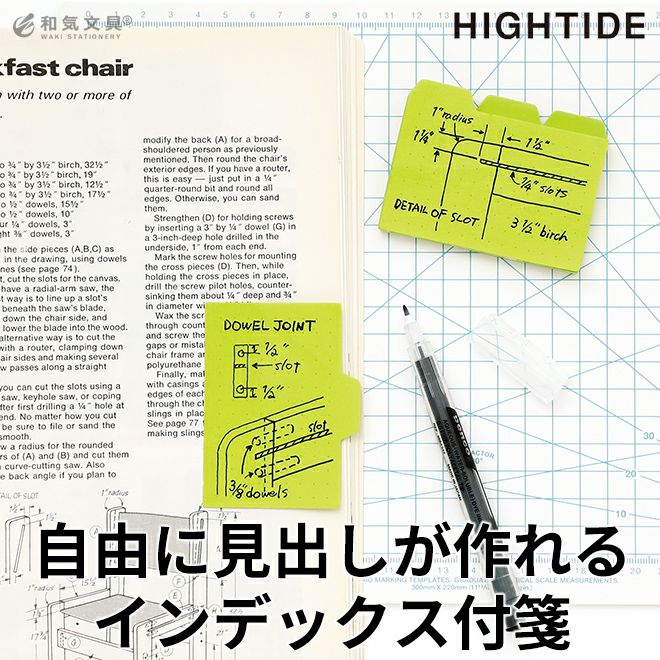 和気文具®
WAKI STATIONERY
HIGHTIDE
kfast chair
with two or more of
to ¾" by 3½" birch, 32½"
to ¾" by 3½" birch, 19"
to ¾" by 3½" birch, 12½"
to ¾" by 3½" birch, 17½"
½" dowels, 15½"
½" dowels, 10"
ur ¼" dowels, 3"
ght ⅜" dowels, 3"
the side pieces (A,B,C) as
in the drawing, using dowels
nes (see page 74).
t, cut the slots for the canvas.
have a radial-arm saw, the
st way is to line up a slot's
beneath the saw's blade,
down the chair side, and
lower the blade into the wood.
alternative way is to cut the
with a router, clamping down
air sides and making several
w passes along a straight
you can cut the slots using a
saw, keyhole saw, or coping
fter first drilling a ¼" hole at
end. No matter how you cut
be sure to file or sand the
smooth.
w a radius for the rounded
rs of (A) and (B) and cut them
a curve-cutting saw. Also
e back angle if you plan to
modify the back (A) for a broad-
shouldered person as previously
mentioned. Then round the chair's
exterior edges. If you have a router,
this is easy — just put in a ¼"
quarter-round bit and round all
edges. Otherwise, you can sand
them.
Strengthen (D) for holding screws
by inserting a 3" by ¼" dowel (G) in
a 3-inch-deep hole drilled in the
underside, 1" from each end.
Mark the screw holes for mounting
the cross pieces (D). Then, while
holding the cross pieces in place,
drill the screw pilot holes, counter-
sinking them about ¼" deep and ¾"
in diameter
Wax the scr
through count
and screw the
gaps or mistak
chair frame an
polyurethane
Finally, mak
with casings a
edges of each
through the
slings in place
See page 77 f
making slings
DOWEL JOINT
½"
slot
½"
slot
⅜" dowels
1" radius
1¼"
1½"
¼" slots
DETAIL OF SLOT
3½" birch
TAIL OF SLOT
1" radius
自由に見出しが作れる
インデックス付箋